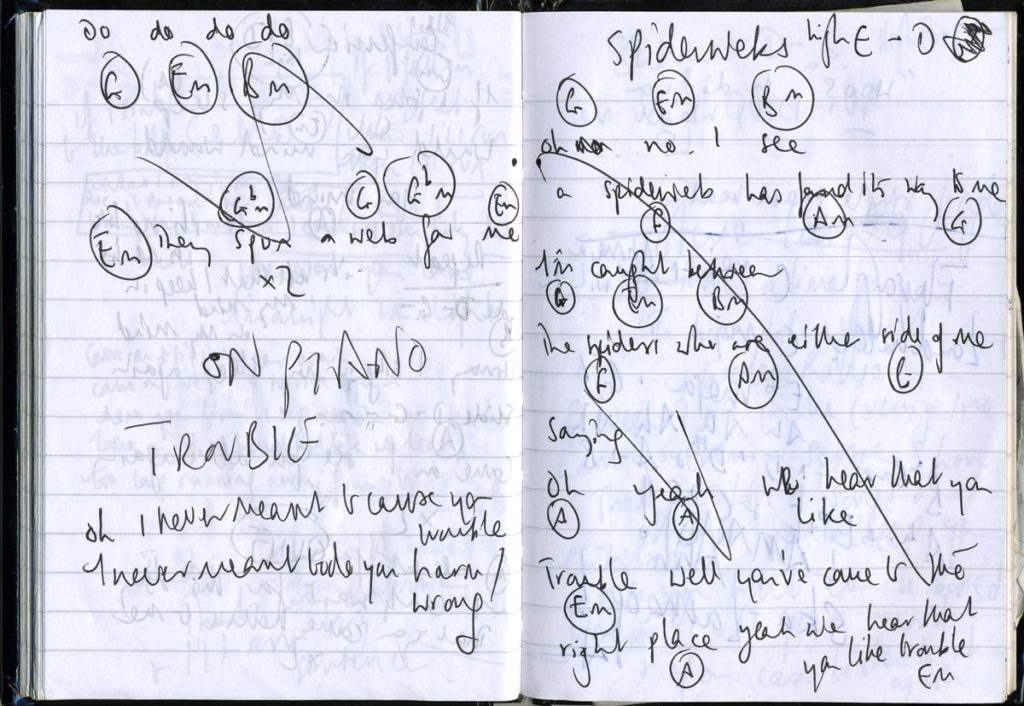 Do do do do
G Em Bm
Gbm G Gbm Em
Em They spun a web for me
x2
ON PIANO
TROUBLE
oh I never meant to cause you
trouble
I never meant to do you harm /
wrong
Spiderwebs high E - D
G Em Bm
oh no. I see
a spiderweb has found its way to me
F Am G
I'm caught between
G Em Bm
The spiders who are either side of me
F Am G
Saying
Oh yeah we hear that you
A A like
Trouble well you've come to the
Em
right place yeah we hear that
A you like trouble
Em